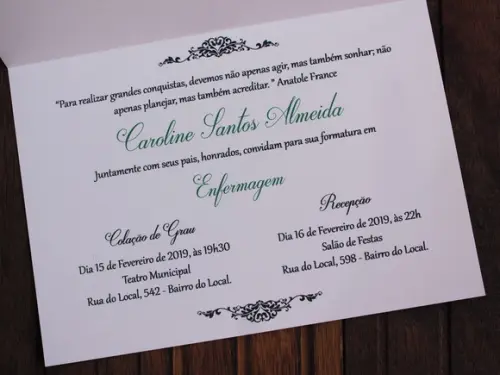 "Para realizar grandes conquistas, devemos não apenas agir, mas também sonhar; não
apenas planejar, mas também acreditar. " Anatole France
Caroline Santos Almeida
Juntamente com seus pais, honrados, convidam para sua formatura em
Enfermagem
Colação de Grau
Dia 15 de Fevereiro de 2019, às 19h30
Teatro Municipal
Rua do Local, 542 - Bairro do Local.
Recepção
Dia 16 de Fevereiro de 2019, às 22h
Salão de Festas
Rua do Local, 598 - Bairro do Local.